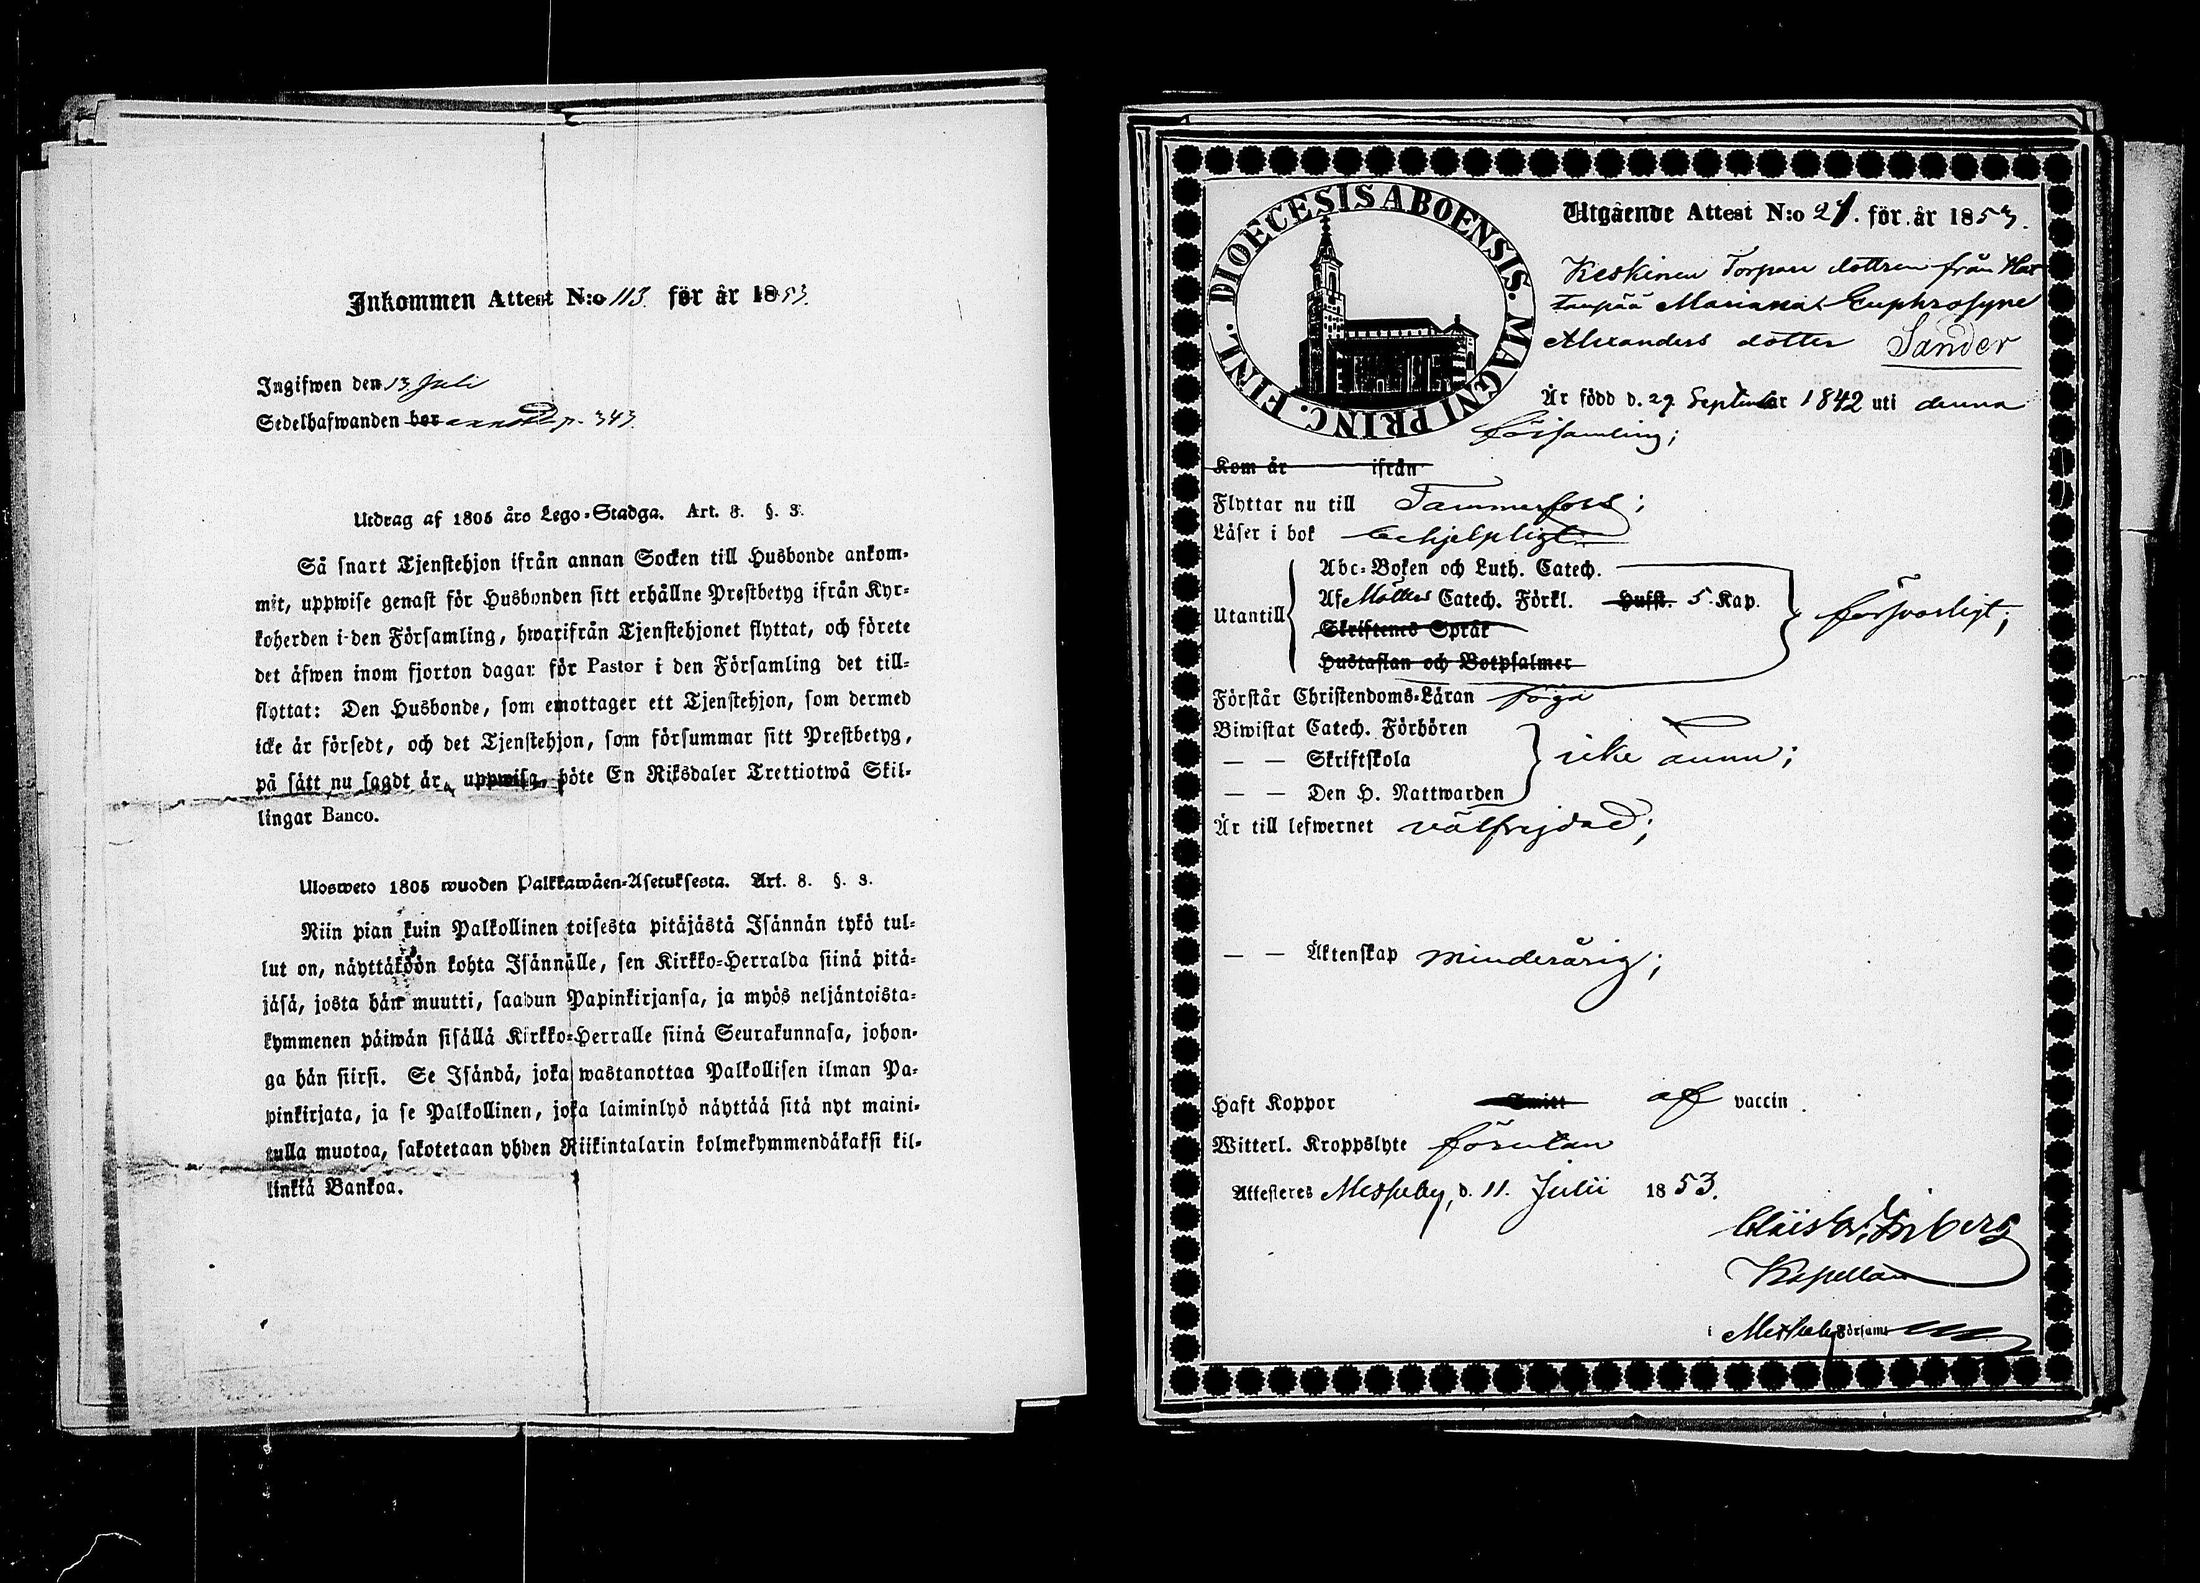 Inkommen Attest N:o 113. för år 1853.
Ingifwen den 13. Juli
Sedelhafwanden bor p. 343.
Utdrag af 1805 års Lego-Stadga. Art. 8. §. 3.
Så snart Tjenstehjon ifrån annan Socken till Husbonde ankom-
mit, uppwise genast för Husbonden sitt erhållne Prestbetyg ifrån Kyr-
koherden i den Församling, hwarifrån Tjenstehjonet flyttat, och förete
det äfwen inom fjorton dagar för Pastor i den Församling det till-
flyttat: Den Husbonde, som emottager ett Tjenstehjon, som dermed
icke är försedt, och det Tjenstehjon, som försummar sitt Prestbetyg,
på sätt nu sagdt är, uppwisa, böte En Riksdaler Trettiotwå Skil-
lingar Banco.
Ulosweto 1805 wuoden Palkkawäen-Asetuksesta. Art. 8. §. 3.
Niin pian kuin Palkollinen toisesta pitäjästä Isännän tykö tul-
lut on, näyttäköön kohta Isännälle, sen Kirkko-Herralda siinä pitä-
jäsä, josta hän muutti, saadun Papinkirjansa, ja myös neljäntoista-
kymmenen päiwän sisällä Kirkko-Herralle siinä Seurakunnasa, johon-
ga hän siirsi. Se Isändä, joka wastanottaa Palkollisen ilman Pa-
pinkirjata, ja se Palkollinen, joka laiminlyö näyttää sitä nyt maini-
tulla muotoa, sakotetaan yhden Riikintalarin kolmekymmendäkaksi kil-
linkiä Bankoa.
DIOECESIS ABOENSIS. MAGNI PRINC. FINL.
Utgående Attest N:o 21. för år 1853.
Keskinen Torpare dottren från Hat
tanpää Mariana Euphrosyne
Alexanders dotter Sander
Är född d. 29. September 1842 uti denna
församling;
Kom år ifrån
Flyttar nu till Tammerfors;
Läser i bok behjelpligt
Abc-Boken och Luth. Catech.
Utantill Af Möllers Catech. Förkl. Hufst. 5. Kap. försvarligt;
Skriftenes Språk
Hustaflan och Botpsalmer
Förstår Christendoms-Läran föga
Biwistat Catech. Förhören
— — Skriftskola icke ännu;
— — Den H. Nattwarden
Är till lefwernet välfrejdad;
— — Äktenskap minderårig;
Haft Koppor Smitt af vaccin.
Witterl. Kroppslyte förutan
Attesteras Messuby, d. 11. Julii 1853.
Kapellan
i Messuby Församl